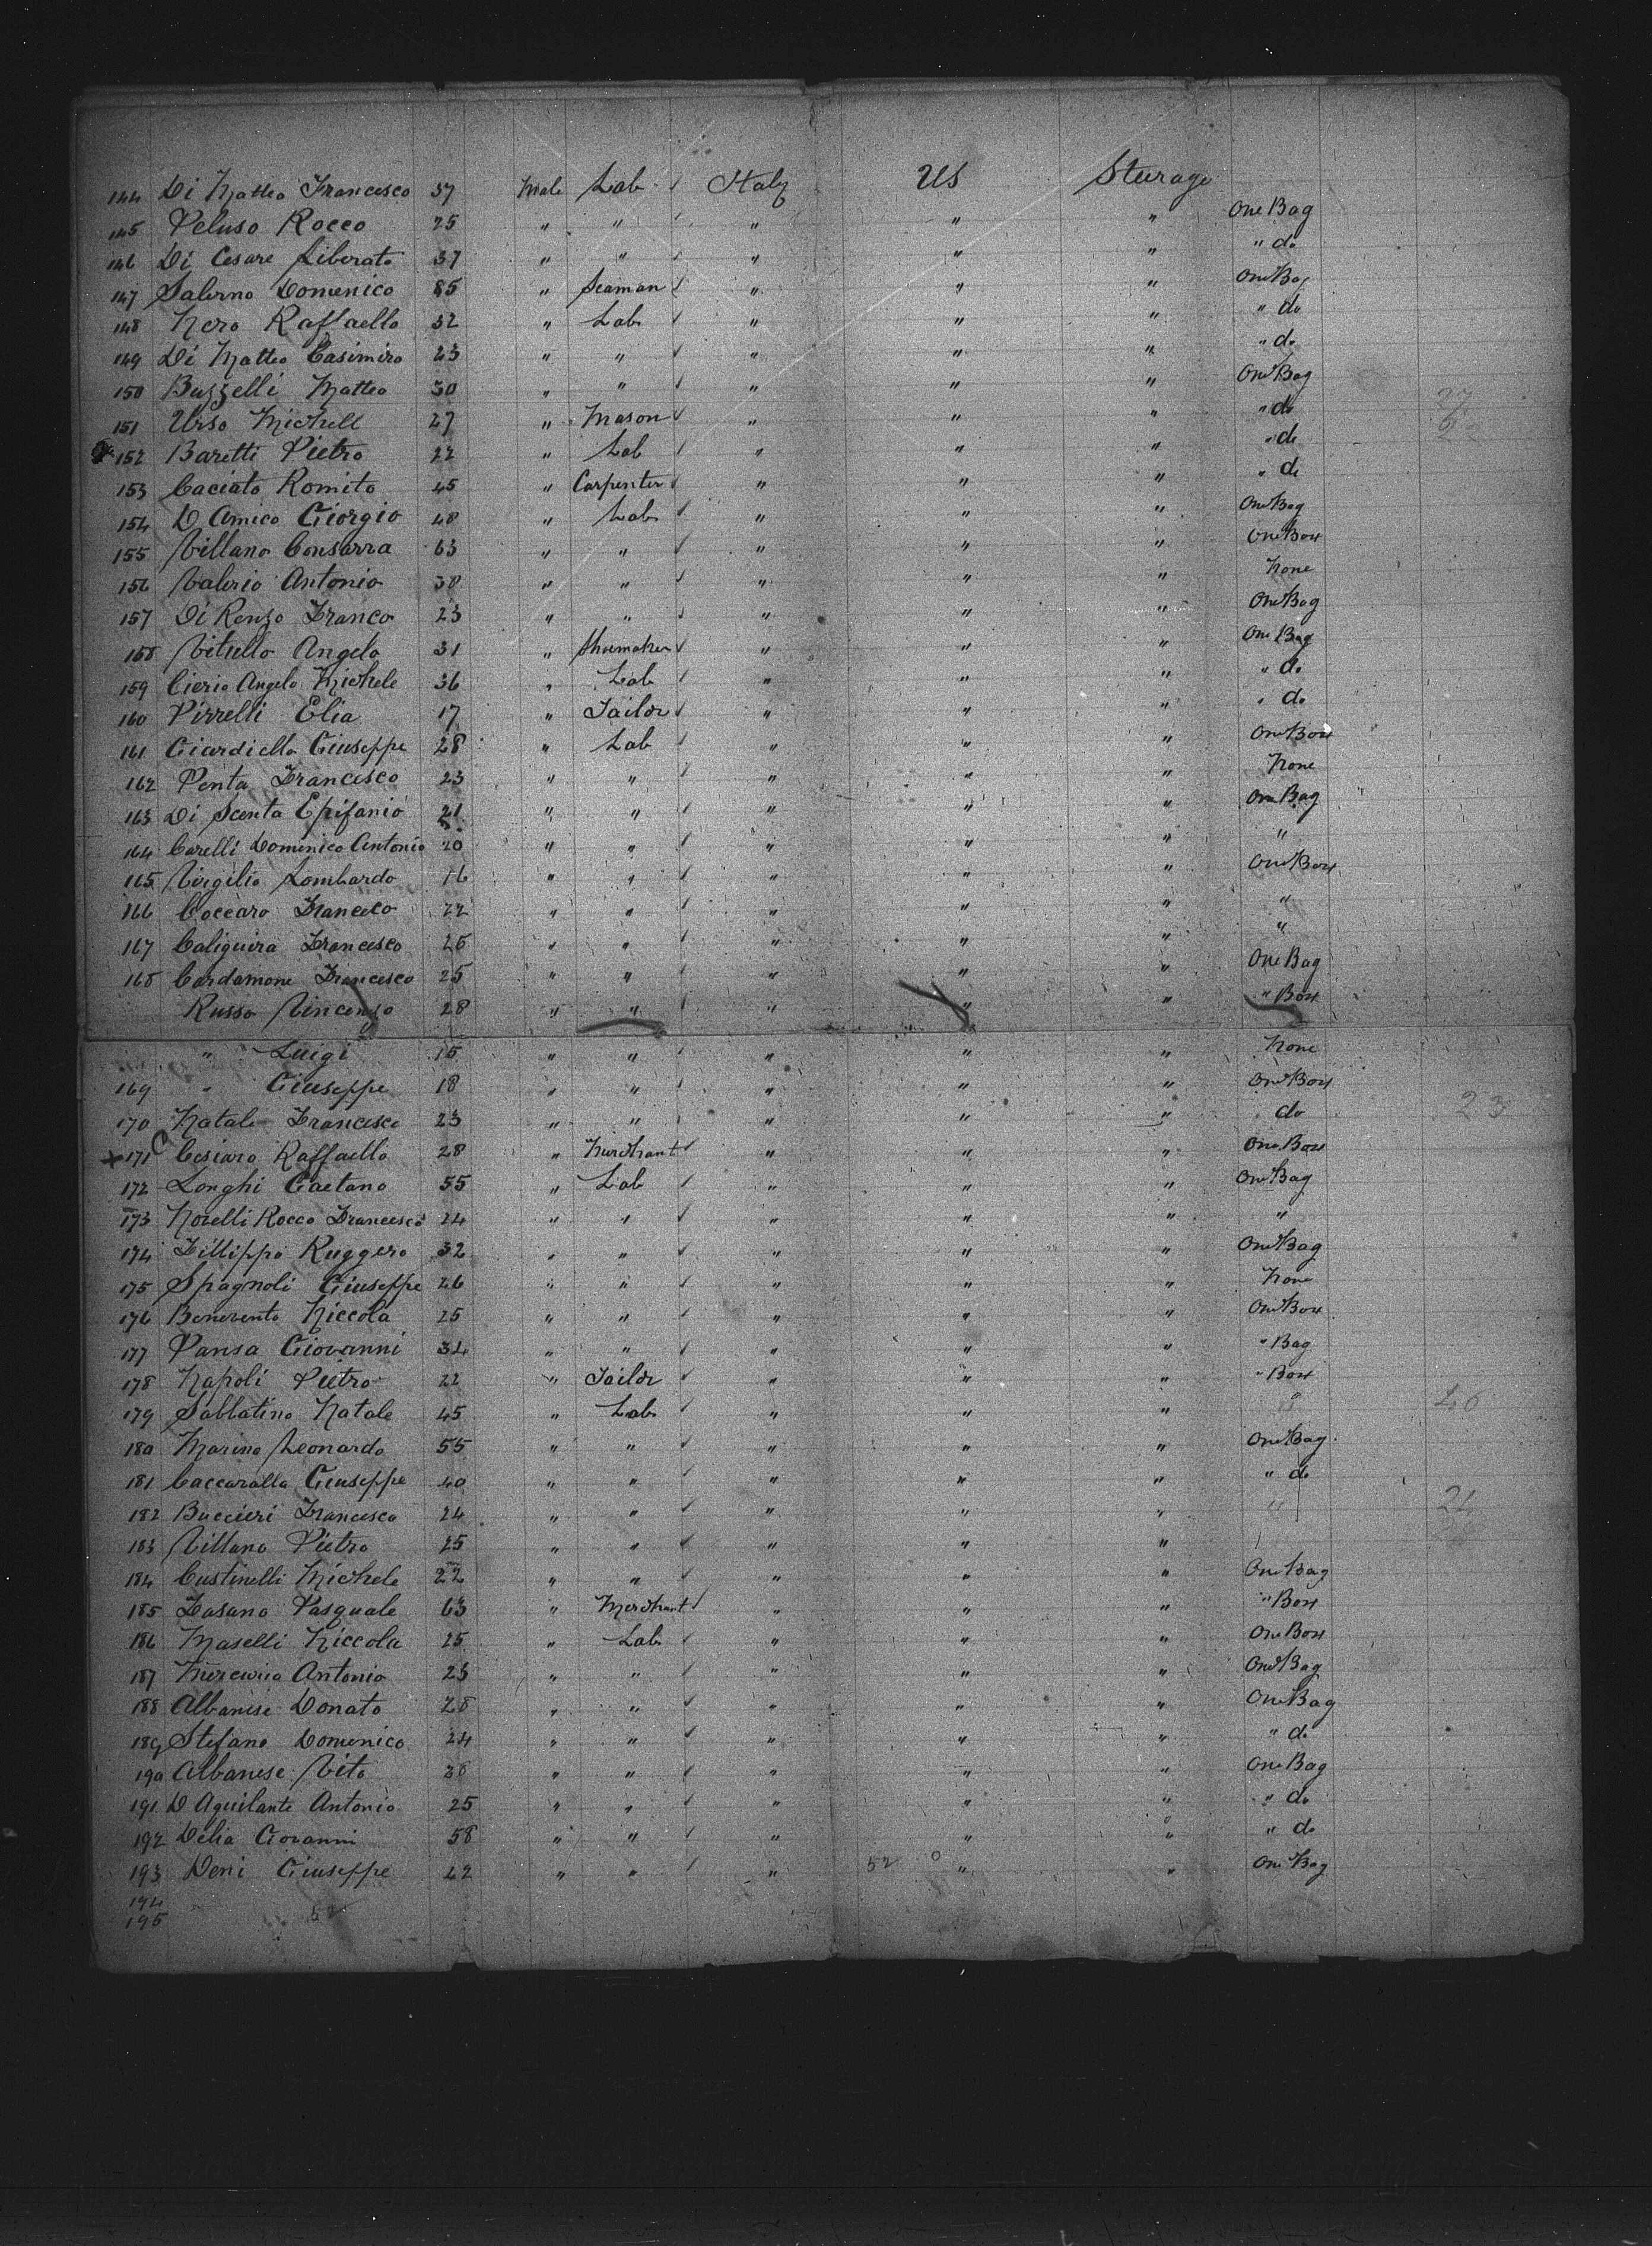 144 Di Matteo Francesco 37 Male Lab Italy US Sturage
145 Peluso Rocco 25 " " " " " One Bag
146 Di Cesare Liberato 37 " " " " " " do
147 Salerno Domenico 85 " Seaman " " " One Bag
148 Nero Raffaello 32 " Lab " " " " do
149 Di Matteo Casimiro 23 " " " " " " do
150 Buzzelli Matteo 30 " " " " " One Bag
151 Urso Michell 27 " Mason " " " " do
152 Baretti Pietro 22 " Lab " " " " do
153 Caciato Romito 45 " Carpenter " " " " do
154 D Amico Giorgio 48 " Lab " " " One Bag
155 Villano Consarra 63 " " " " " One Box
156 Valerio Antonio 38 " " " " " None
157 Di Renzo Franco 23 " " " " " One Bag
158 Vitullo Angelo 31 " Shoemaker " " " One Bag
159 Cierio Angelo Michele 36 " Lab " " " " do
160 Pirrelli Elia 17 " Tailor " " " " do
161 Ciardiello Giuseppe 28 " Lab " " " One Box
162 Penta Francesco 23 " " " " " None
163 Di Scenta Epifanio 21 " " " " " One Bag
164 Carelli Domenico Antonio 20 " " " " " "
165 Virgilio Lombardo 16 " " " " " One Box
166 Coccaro Francesco 22 " " " " " "
167 Caliguira Francesco 26 " " " " " "
168 Cardamone Francesco 25 " " " " " One Bag
Russo Vincenzo 28 " " " " " " Box
" Luigi 15 " " " " " None
169 " Giuseppe 18 " " " " " One Box
170 Natale Francesco 23 " " " " " do 23
171 Cesiaro Raffaello 28 " Merchant " " " One Box
172 Longhi Gaetano 55 " Lab " " " One Bag
173 Norelli Rocco Francesco 24 " " " " " "
174 Fillippo Ruggero 32 " " " " " One Bag
175 Spagnoli Giuseppe 26 " " " " " None
176 Benevento Niccola 25 " " " " " One Box
177 Pansa Giovanni 34 " " " " " " Bag
178 Napoli Pietro 22 " Tailor " " " " Box
179 Sabbatino Natale 45 " Lab " " " "
180 Marino Leonardo 55 " " " " " One Bag
181 Caccavallo Giuseppe 40 " " " " " " do
182 Buccieri Francesco 24 " " " " " "
183 Villano Pietro 25 " " " " "
184 Custinelli Michele 22 " " " " " One Bag
185 Fasano Pasquale 63 " Merchant " " " " Box
186 Maselli Niccola 25 " Lab " " " One Box
187 Murcurio Antonio 23 " " " " " One Bag
188 Albanese Donato 28 " " " " " One Bag
189 Stefano Domenico 24 " " " " " " do
190 Albanese Vito 38 " " " " " One Bag
191 D Aquilante Antonio 25 " " " " " " do
192 Delia Giovanni 58 " " " " " " do
193 Deni Giuseppe 42 " " " 52 " " One Bag
194
195 52